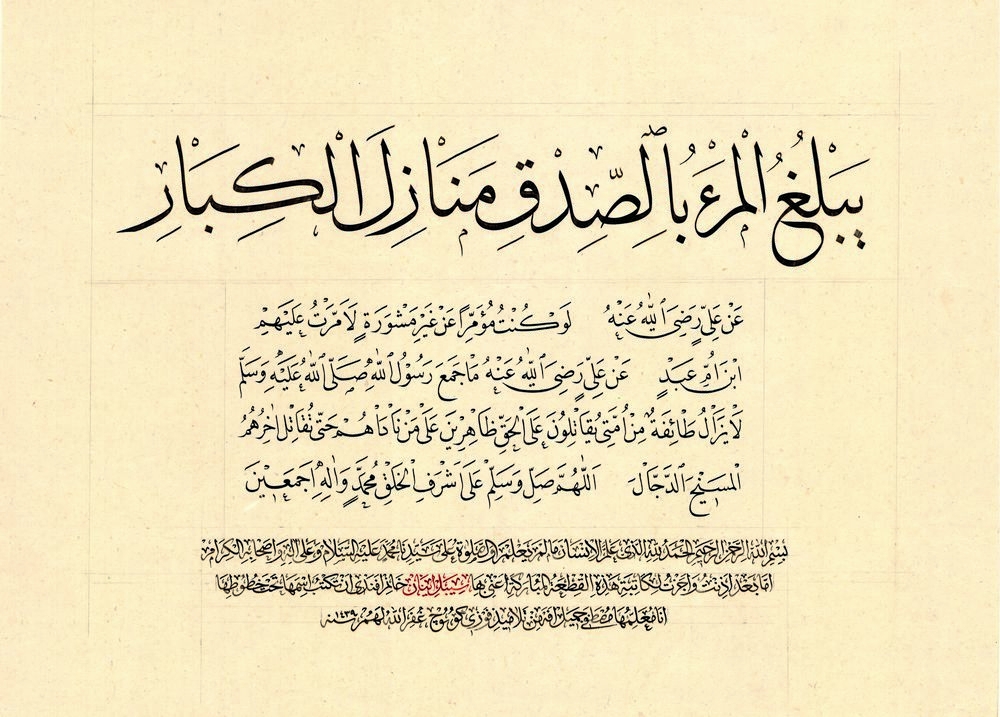 يَبْلُغُ الْمَرْءُ بِالصِّدْقِ مَنَازِلَ الْكِبَارِ
عَنْ عَلِىٍّ رَضِىَ اللّٰهُ عَنْهُ لَوْ كُنْتُ مُؤَمِّرًا عَنْ غَيْرِ مَشْوَرَةٍ لَاَمَّرْتُ عَلَيْهِمْ
ابْنَ اُمِّ عَبْدٍ عَنْ عَلِىٍّ رَضِىَ اللّٰهُ عَنْهُ مَا جَمَعَ رَسُوْلُ اللّٰهِ صَلَّى اللّٰهُ عَلَيْهِ وَسَلَّمَ
لَا يَزَالُ طَائِفَةٌ مِنْ اُمَّتِى يُقَاتِلُونَ عَلَى الْحَقِّ ظَاهِرِينَ عَلَى مَنْ نَاوَاَهُمْ حَتَّى تُقَاتِلَ اٰخِرُهُمُ
الْمَسِيْحَ الدَّجَّالَ اَللّٰهُمَّ صَلِّ وَسَلِّمْ عَلَى اَشْرَفِ الْخَلْقِ مُحَمَّدٍ وَاٰلِهِ اَجْمَعِيْنَ
بسم الله الرحمن الرحيم الحمد لله الذى علم الانسان ما لم يعلم والصلوة على سيدنا محمد عليه السلام وعلى اله واصحابه الكرام
اما بعد اذنت واجزت لكاتبة هذه القطعة المباركة اعنى بها خانم افندى ان تكتب اسمها تحت خطوطها
انا معلمها من تلاميذ فوزى غفر الله لهم سنه ١٤٣٩